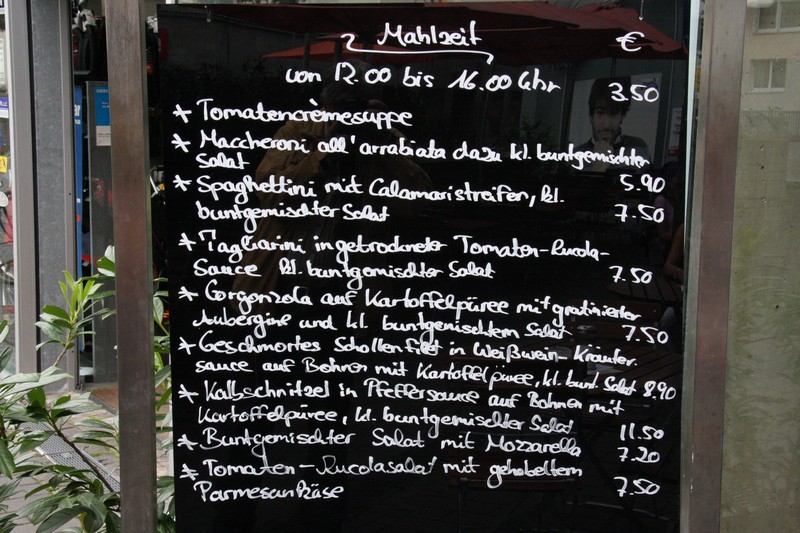 Mahlzeit €
von 12.00 bis 16.00 Uhr
* Tomatencrèmesuppe 3.50
* Maccheroni all'arrabiata dazu kl. buntgemischter
Salat 5.90
* Spaghettini mit Calamaristreifen, kl.
buntgemischter Salat 7.50
* Tagliarini in getrockneter Tomaten-Rucola-
Sauce kl. buntgemischter Salat 7.50
* Gorgonzola auf Kartoffelpüree mit gratinierter
Aubergine und kl. buntgemischtem Salat 7.50
* Geschmortes Schollenfilet in Weißwein-Kräuter.
sauce auf Bohnen mit Kartoffelpüree, kl. bunt. Salat 8.90
* Kalbschnitzel in Pfeffersauce auf Bohnen mit
Kartoffelpüree, kl. buntgemischter Salat 11.50
* Buntgemischter Salat mit Mozzarella 7.20
* Tomaten-Rucolasalat mit gehobeltem
Parmesankäse 7.50